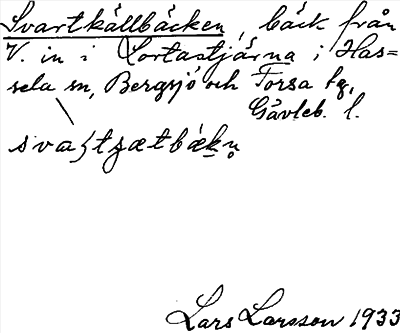 Svartkällbäcken, bäck från
V. in i Lortastjärna i Has=
sela sn, Bergsjö och Forsa hg,
Gävleb. l.
Lars Larsson 1933